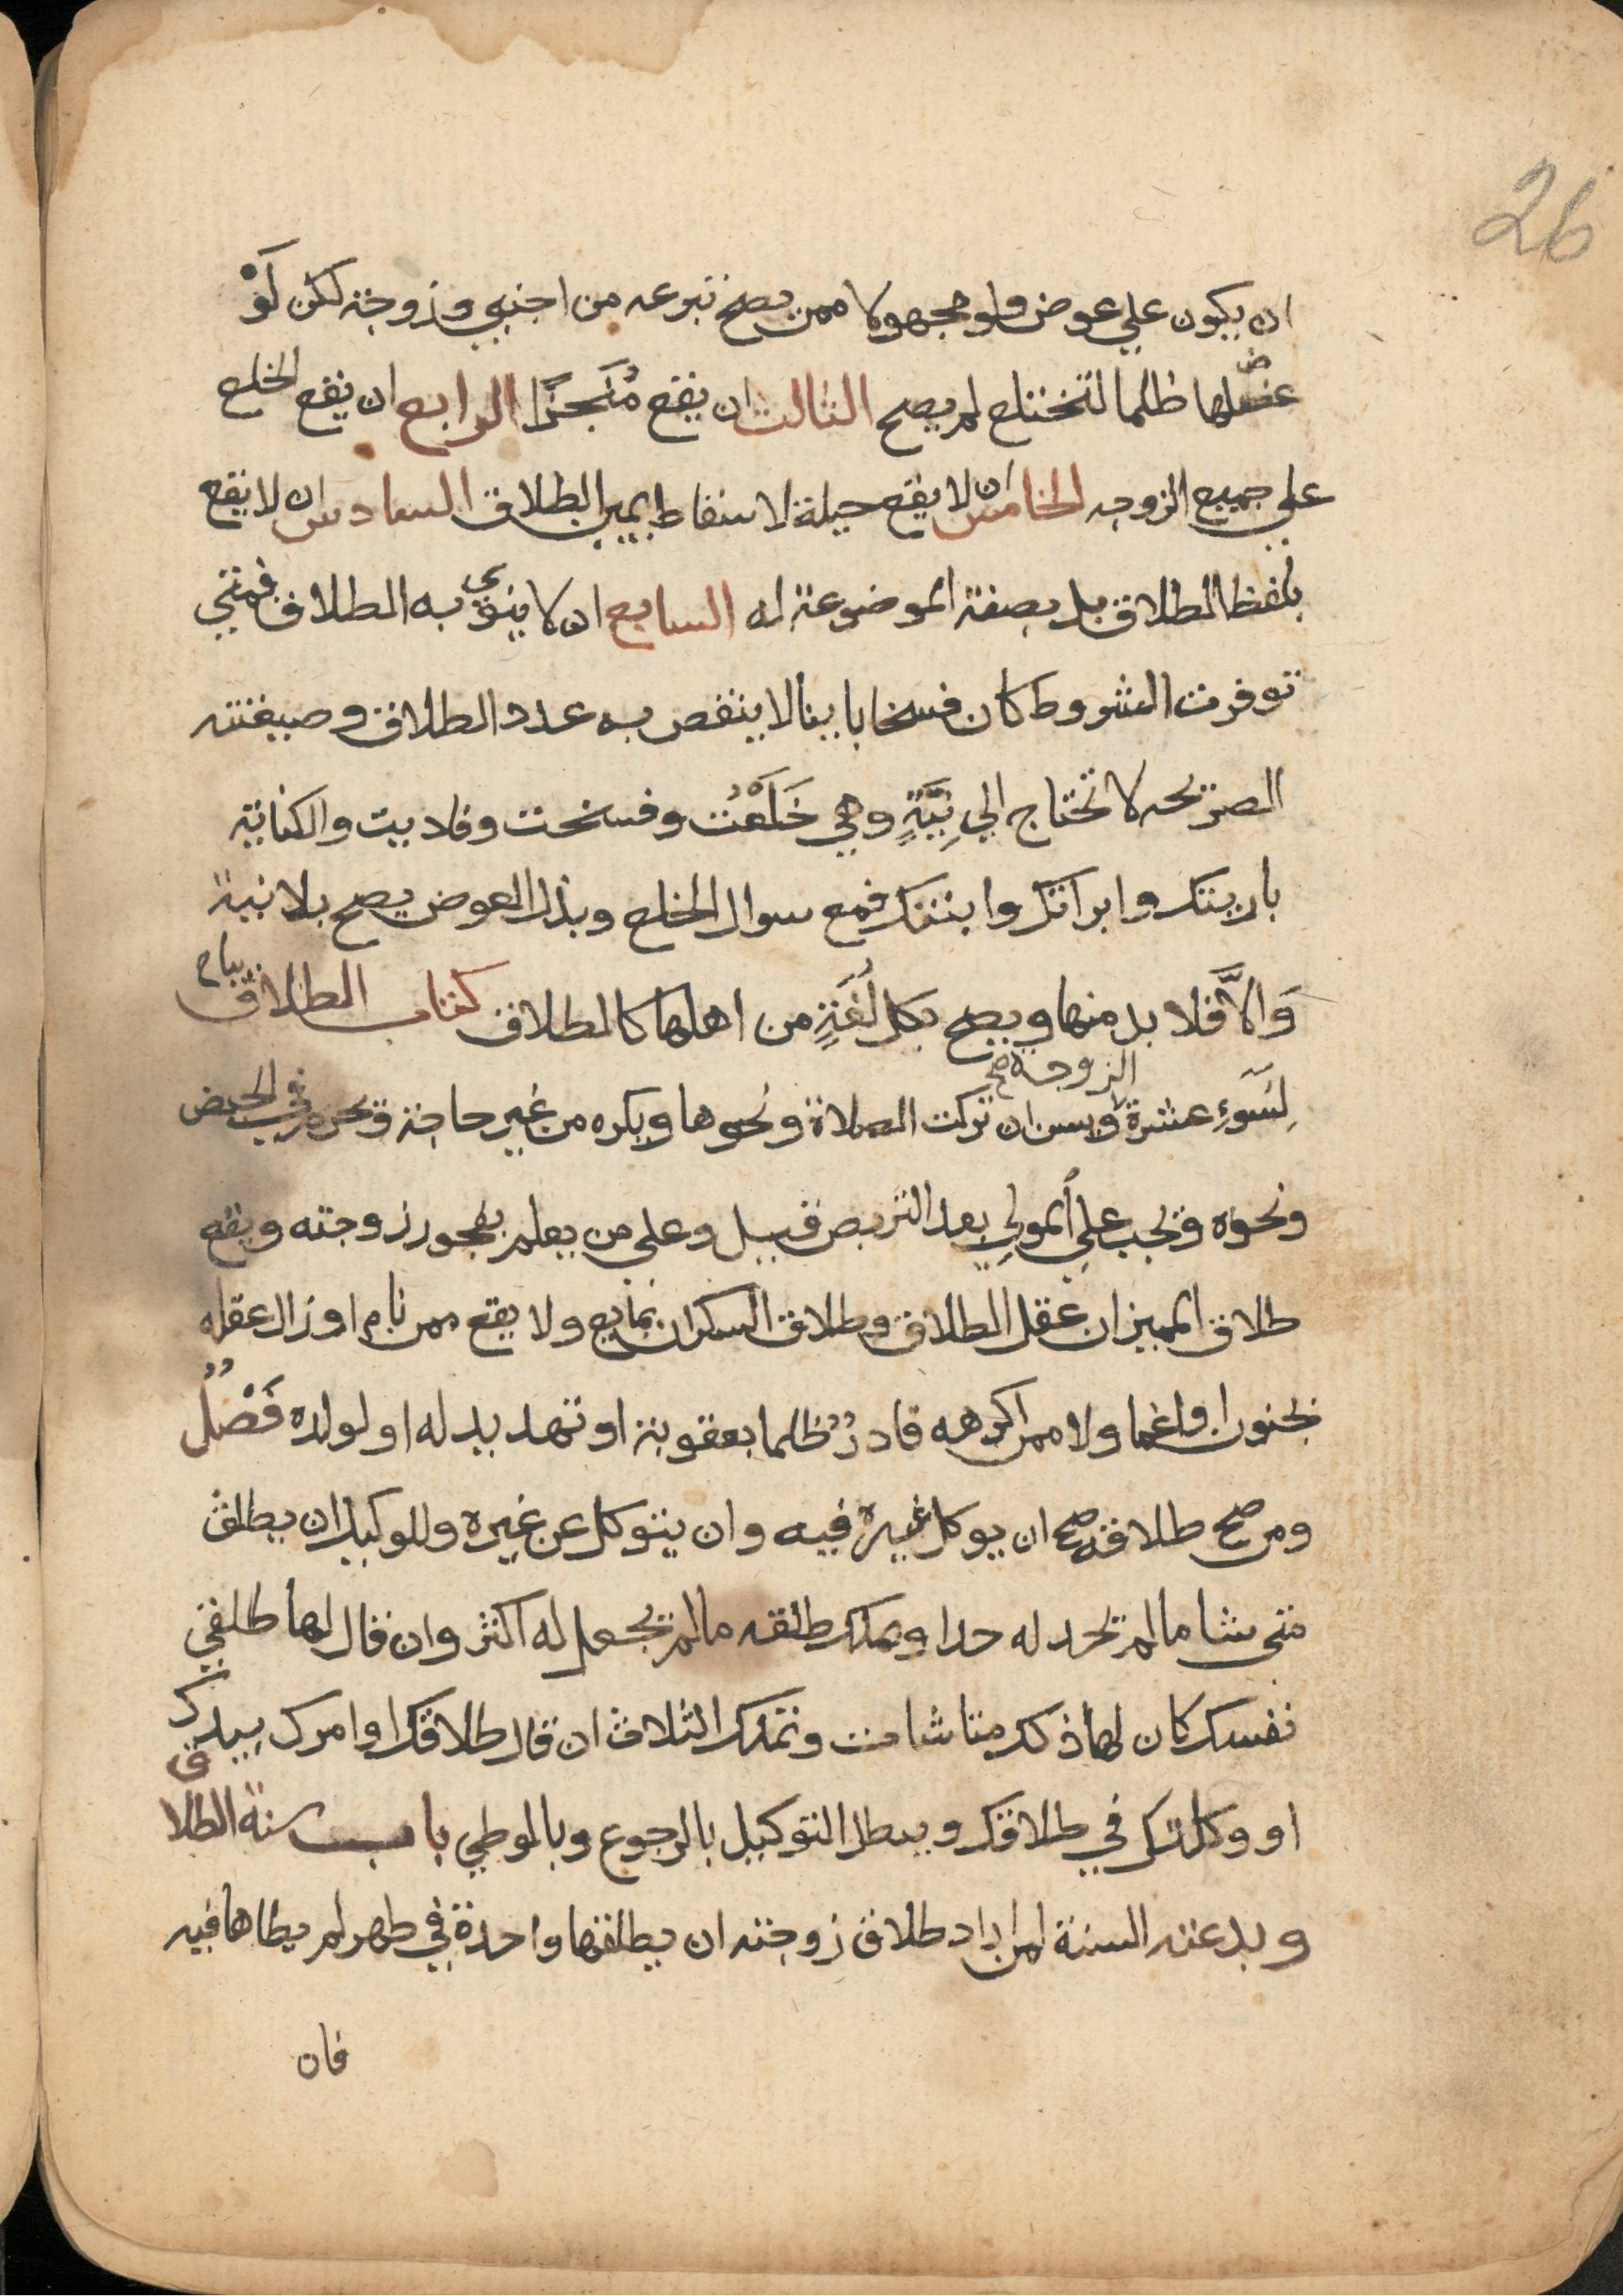 26
ان يكون علي عوض ولو مجهولا ممن يصح تبرعه من اجنبي وزوجة لكن لَوْ
عضلها ظلما لتختلع لم يصح الثالث ان يقع مُنَجَزًا الرابع ان يقع الخلع
علي جميع الزوجه الخامس ان لا يقع حيلة لاسقاط يمين الطلاق السادس ان لا يقع
بلفظ الطلاق بل بصيغة الموضوعة له السابع ان لا ينوي به الطلاق فمتي
توفرت الشروط كان فسخا باينا لا ينقص به عدد الطلاق وصيغته
الصريحه لا تحتاج الي نِيَّةٍ وهي خَلَعْتُ وفسخت وفاديت والكناية
باريتك وابراتك وابنتك فمع سوال الخلع وبذل العوض يصح بلا نية
وَالاَّ فلا بد منها ويصح بكل لُغَةٍ من اهلها كالطلاق كتاب الطلاق يباح
لِسَوءِ عشرة الزوجة صح ويسن ان تركت الصلاة ونحوها ويكره من غير حاجة ويحرم في الحيض
ونحوه ويجب علي المولِي بعد التربص قيل وعلي من يعلم بفجور زوجته ويقع
طلاق المميز ان عقل الطلاق وطلاق السكران بمايع ولا يقع ممن نام او زال عقله
بجنون او اغما ولا ممن اكرهه قادرٌ ظلما بعقوبة او تهديد له او لولده فَصْلٌ
ومن صح طلاقه صح ان يوكل غيره فيه وان يتوكل عن غيره وللوكيل ان يطلق
متي شا ما لم يحد له حدا ويملك طلقه ما لم يجعل له اكثر وان قال لها طلقي
نفسك كان لها ذلك متا شات وتملك الثلاث ان قال طلاقك او امرك بيدك
او وكلتك في طلاقك ويبطل التوكيل بالرجوع وبالوطي باب سنة الطلاق
وبدعته السنة لمن اراد طلاق زوجته ان يطلقها واحدة في طهر لم يطاها فيه
فان